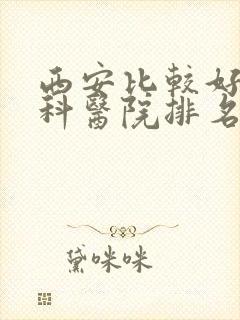 西安比較好
科醫院排名
黛咪咪